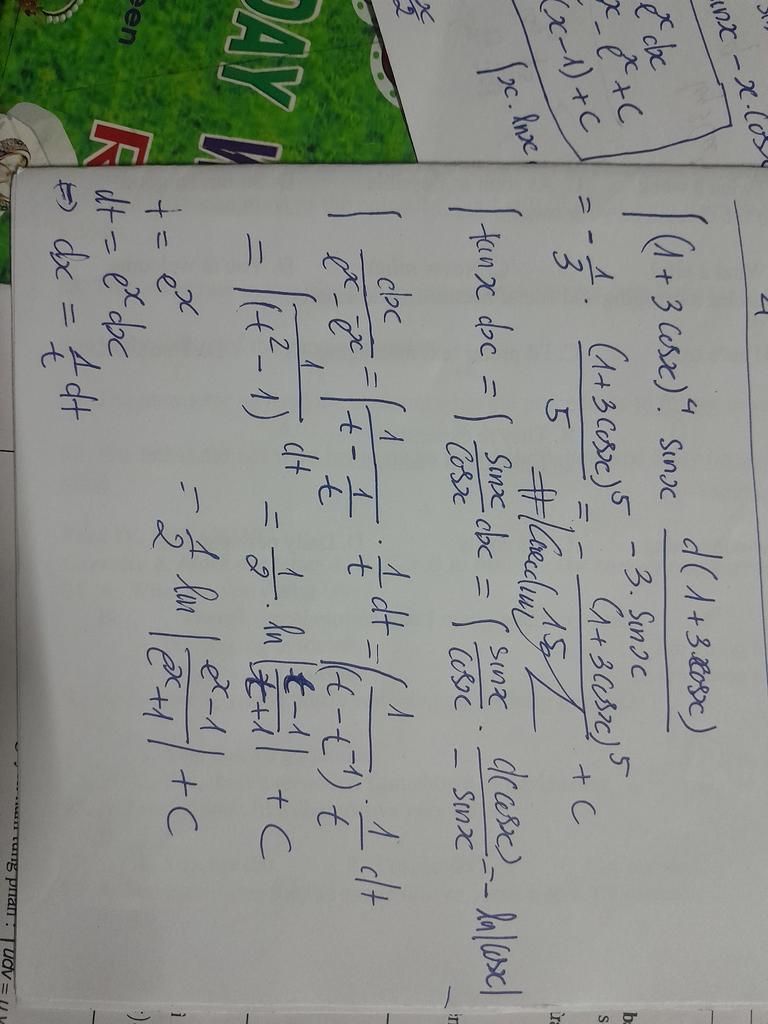 ∫ (1 + 3cosx)⁴ . sinx d(1 + 3cosx) / -3.sinx
= -1/3 (1+3cosx)⁵/5 = - (1+3cosx)⁵/15 + C
∫ tanx dx = ∫ sinx/cosx dx = ∫ sinx/cosx . d(cosx)/-sinx = -ln|cosx|
∫ dx/(eˣ - e⁻ˣ) = ∫ 1/(t - 1/t) . 1/t dt = ∫ 1/(t - t⁻¹) . 1/t dt
= ∫ 1/(t² - 1) dt = 1/2 . ln |(t-1)/(t+1)| + C
t = eˣ = 1/2 ln |(eˣ-1)/(eˣ+1)| + C
dt = eˣ dx
⇔ dx = 1/t dt
eˣ dx
x - eˣ + C
(x-1) + C
∫x.lnx
sinx - x.cosx
x/2
een
DAY